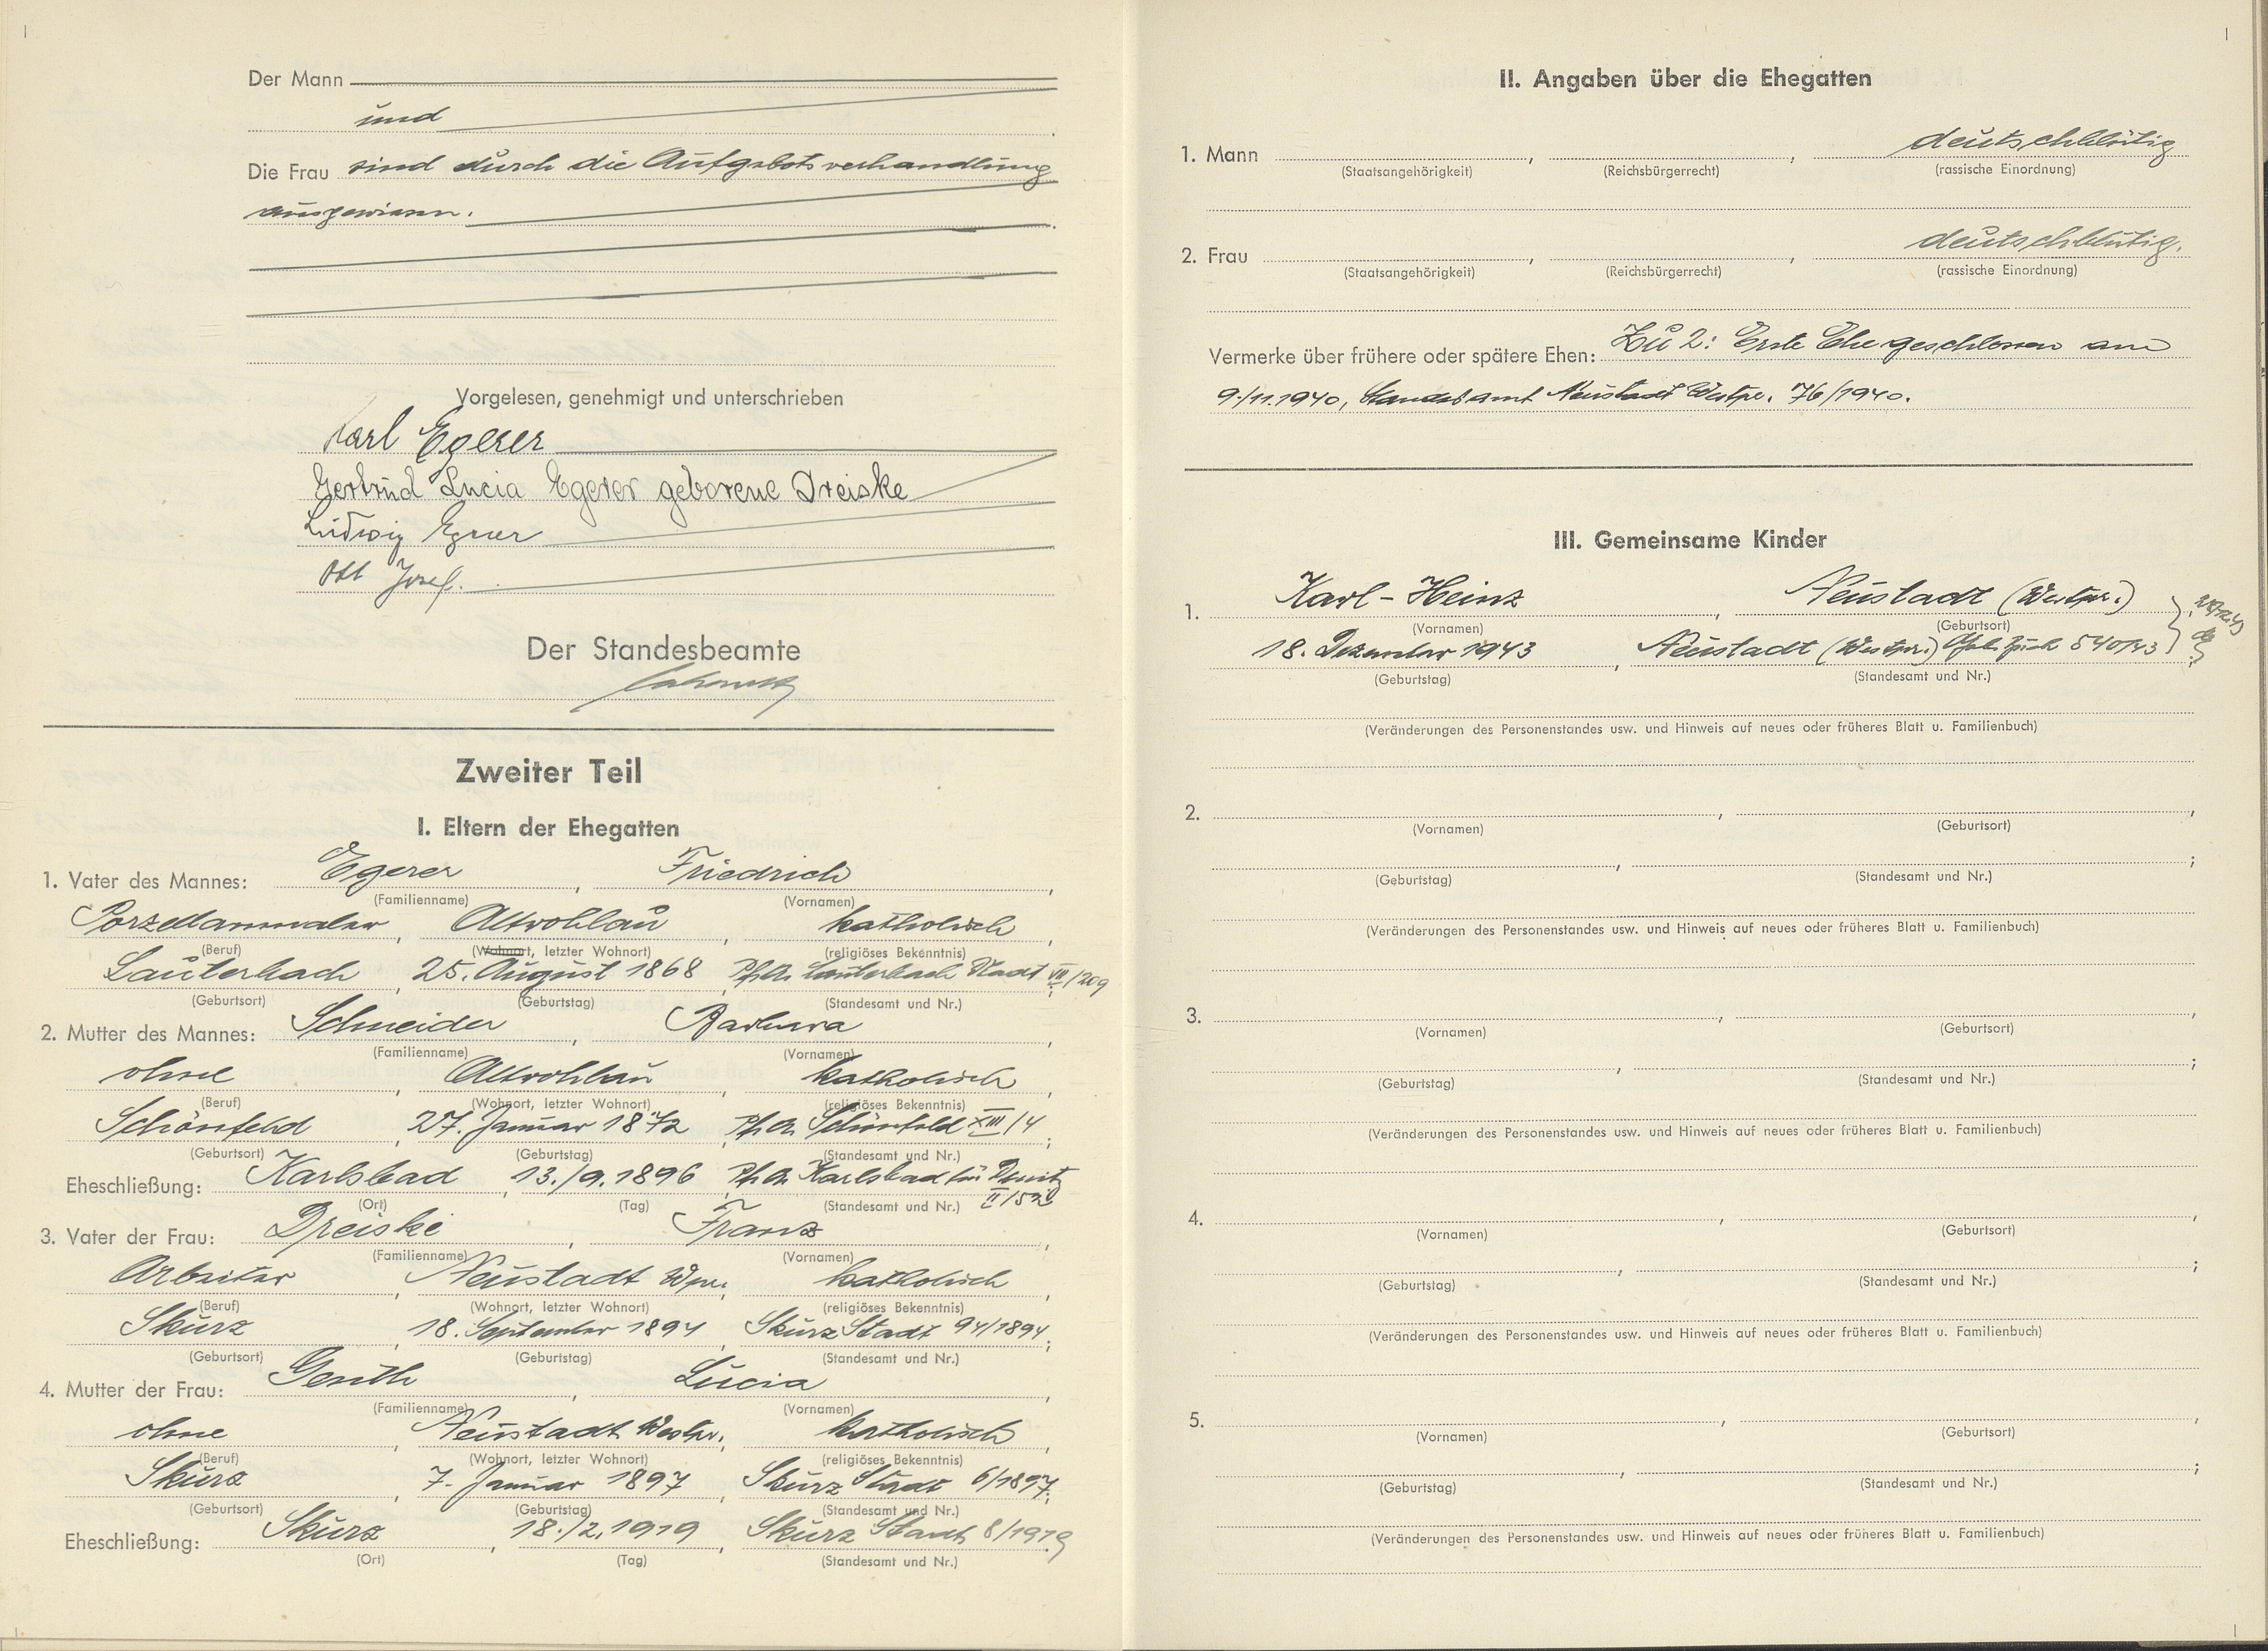 Der Mann
und
Die Frau sind durch die Aufgebotsverhandlung
ausgewiesen.
Vorgelesen, genehmigt und unterschrieben
Karl Egerer
Gertrud Lucia Egerer geborene Dreiske
Ludwig Egerer
Ott Josef.
Der Standesbeamte
Zweiter Teil
I. Eltern der Ehegatten
1. Vater des Mannes: Egerer, Friedrich,
(Familienname) (Vornamen)
Porzellanmaler, Altrohlau, katholisch,
(Beruf) (Wohnort, letzter Wohnort) (religiöses Bekenntnis)
Lauterbach, 25. August 1868, Pf.A. Lauterbach Stadt VII/209;
(Geburtsort) (Geburtstag) (Standesamt und Nr.)
2. Mutter des Mannes: Schneider, Barbara,
(Familienname) (Vornamen)
ohne, Altrohlau, katholisch,
(Beruf) (Wohnort, letzter Wohnort) (religiöses Bekenntnis)
Schönfeld, 27. Januar 1872, Pf.A. Schönfeld XIII/4;
(Geburtsort) (Geburtstag) (Standesamt und Nr.)
Eheschließung: Karlsbad, 13./9.1896, Pf.A. Karlsbad für
II/52
(Ort) (Tag) (Standesamt und Nr.)
3. Vater der Frau: Dreiske, Franz,
(Familienname) (Vornamen)
Arbeiter, Neustadt Wpr., katholisch,
(Beruf) (Wohnort, letzter Wohnort) (religiöses Bekenntnis)
Skurz, 18. September 1894, Skurz Stadt 94/1894;
(Geburtsort) (Geburtstag) (Standesamt und Nr.)
4. Mutter der Frau: Genth, Lucia,
(Familienname) (Vornamen)
ohne, Neustadt Westpr., katholisch,
(Beruf) (Wohnort, letzter Wohnort) (religiöses Bekenntnis)
Skurz, 7. Januar 1897, Skurz Stadt 6/1897;
(Geburtsort) (Geburtstag) (Standesamt und Nr.)
Eheschließung: Skurz, 18./2.1919, Skurz Stadt 8/1919
(Ort) (Tag) (Standesamt und Nr.)
II. Angaben über die Ehegatten
1. Mann , , deutschblütig
(Staatsangehörigkeit) (Reichsbürgerrecht) (rassische Einordnung)
2. Frau , , deutschblütig.
(Staatsangehörigkeit) (Reichsbürgerrecht) (rassische Einordnung)
Vermerke über frühere oder spätere Ehen: Zu 2: Erste Ehe geschlossen am
9./11.1940, Standesamt Neustadt Westpr. 76/1940.
III. Gemeinsame Kinder
1. Karl-Heinz, Neustadt (Westpr.)
(Vornamen) (Geburtsort)
18. Dezember 1943, Neustadt (Westpr.) 540/43
(Geburtstag) (Standesamt und Nr.)
(Veränderungen des Personenstandes usw. und Hinweis auf neues oder früheres Blatt u. Familienbuch)
2. , ,
(Vornamen) (Geburtsort)
, ;
(Geburtstag) (Standesamt und Nr.)
(Veränderungen des Personenstandes usw. und Hinweis auf neues oder früheres Blatt u. Familienbuch)
3. , ,
(Vornamen) (Geburtsort)
, ;
(Geburtstag) (Standesamt und Nr.)
(Veränderungen des Personenstandes usw. und Hinweis auf neues oder früheres Blatt u. Familienbuch)
4. , ,
(Vornamen) (Geburtsort)
, ;
(Geburtstag) (Standesamt und Nr.)
(Veränderungen des Personenstandes usw. und Hinweis auf neues oder früheres Blatt u. Familienbuch)
5. , ,
(Vornamen) (Geburtsort)
, ;
(Geburtstag) (Standesamt und Nr.)
(Veränderungen des Personenstandes usw. und Hinweis auf neues oder früheres Blatt u. Familienbuch)